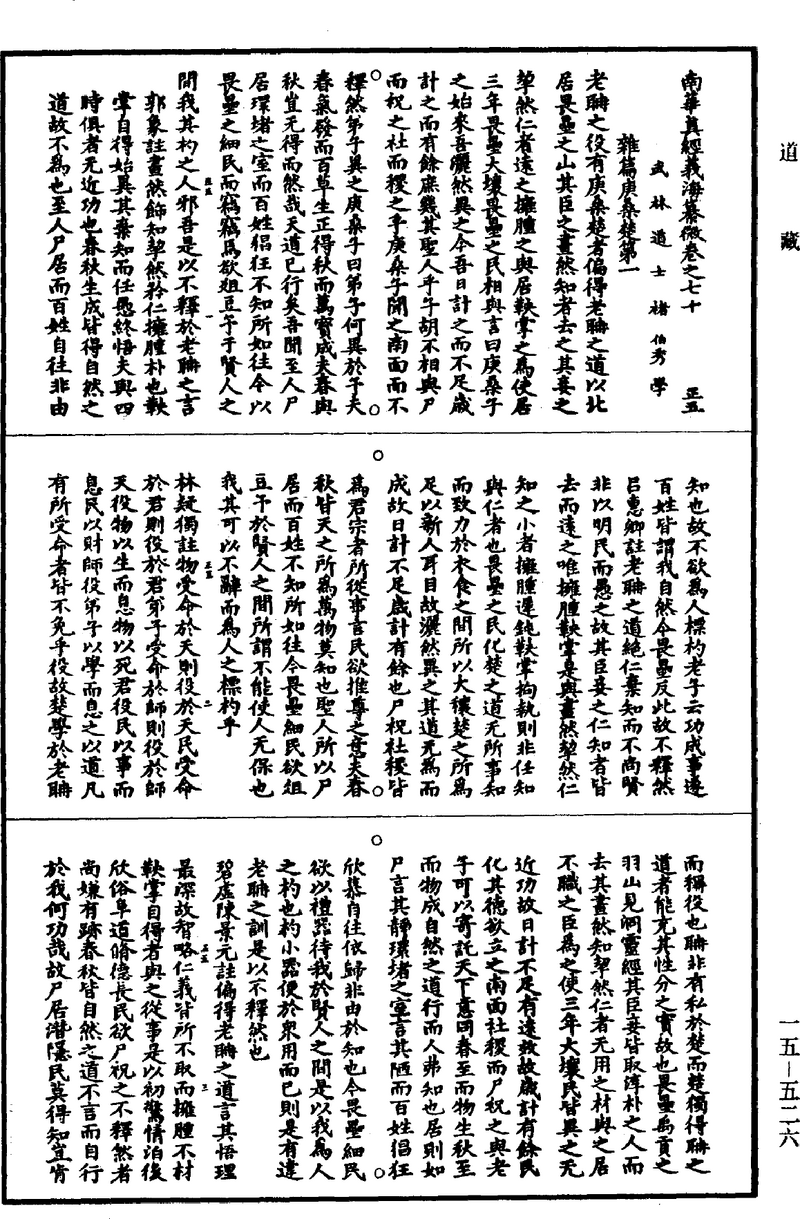 道藏
南華真經義海纂微卷之七十 正五
武林道士褚伯秀學
雜篇庚桑楚第一
老聃之役有庚桑楚者偏得老聃之道以北
居畏壘之山其臣之畫然知者去之其妾之
挈然仁者遠之擁腫之與居鞅掌之為使居
三年畏壘大壤畏壘之民相與言曰庚桑子
之始來吾灑然異之今吾日計之而不足歲
計之而有餘庶幾其聖人乎子胡不相與尸
而祝之社而稷之乎庚桑子聞之南面而不
釋然弟子異之庚桑子曰弟子何異於予夫
春氣發而百草生正得秋而萬寶成夫春與
秋豈无得而然哉天道已行矣吾聞至人尸
居環堵之室而百姓猖狂不知所如往今以
畏壘之細民而竊竊焉欲俎豆予于賢人之
間我其杓之人邪吾是以不釋於老聃之言
郭象註畫然飾知挈然矜仁擁腫朴也鞅
掌自得始異其棄知而任愚終悟夫與四
時俱者无近功也春秋生成皆得自然之
道故不為也至人尸居而百姓自往非由
知也故不欲為人標杓老子云功成事遂
百姓皆謂我自然今畏壘反此故不釋然
呂惠卿註老聃之道絕仁棄知而不尚賢
非以明民而愚之故其臣妾之仁知者皆
去而遠之唯擁腫鞅掌是與畫然挈然仁
知之小者擁腫遲鈍鞅掌拘執則非任知
與仁者也畏壘之民化楚之道无所事知
而致力於衣食之間所以大穰楚之所為
足以新人耳目故灑然異之其道无為而
成故日計不足歲計有餘也尸祝社稷皆
為君宗者所從事言民欲推尊之意夫春
秋皆天之所為萬物莫知也聖人所以尸
居而百姓不知所如往今畏壘細民欲俎
豆予於賢人之間所謂不能使人无保也
我其可以不辭而為人之標杓乎
林疑獨註物受命於天則役於天民受命
於君則役於君弟子受命於師則役於師
天役物以生而息物以死君役民以事而
息民以財師役弟子以學而息之以道凡
有所受命者皆不免乎役故楚學於老聃
而稱役也聃非有私於楚而楚獨得聃之
道者能充其性分之實故也畏壘禹貢之
羽山見洞靈經其臣妾皆取淳朴之人而
去其畫然知挈然仁者无用之材與之居
不職之臣為之使三年大壤民皆異之无
近功故日計不足有遠故歲計有餘民
化其德欲立之南面社稷而尸祝之與老
子可以寄託天下意同春至而物生秋至
而物成自然之道行而人弗知也居則如
尸言其靜環堵之室言其陋而百姓猖狂
欣慕自往依歸非由於知也今畏壘細民
欲以禮器待我於賢人之間是以我為人
之杓也杓小器便於眾用而已則是有違
老聃之訓是以不釋然也
碧虛陳景元註偏得老聃之道言其悟理
最深故智略仁義皆所不取而擁腫不材
鞅掌自得者與之從事是以初驚情泊後
欣俗阜道脩德長民欲尸祝之不釋然者
尚嫌有跡春秋皆自然之道不言而自行
於我何功哉故尸居潛隱民莫得知豈肯
一五-五二六